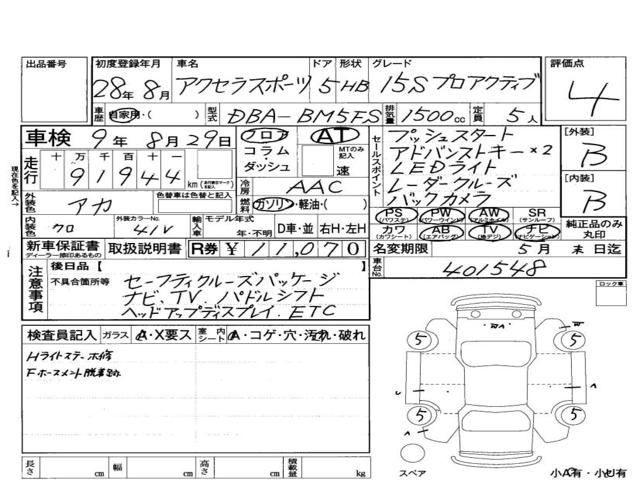 出品番号 初度登録年月 車名 ドア 形状 グレード 評価点
28年 8月 アクセラスポーツ 5 HB 15S プロアクティブ 4
車歴 自家用・( ) 型式 DBA-BM5FS 排気量 1500cc 定員 5人
車検 9年 8月 29日 フロア コラム ダッシュ AT MTのみ記入 速
セールスポイント
プッシュスタート
アドバンストキー×2
LEDライト
レーダークルーズ
バックカメラ
[外装] B
[内装] B
現在色を記入→
走行 十 万 千 百 十 一
91944 km
冷房 AAC
外装色 アカ 色替車は色替と記入 燃料 ガソリン・軽油・( )
PS (パワステ) PW (パワーウインド) AW (アルミホイル) SR (サンルーフ)
カワ (カワシート) AB (エアバッグ) TV (地デジ) ナビ
純正品のみ丸印
内装色 クロ 外装カラーNo. 41V 輸入車 モデル年式 年・不明 D車・並 右H・左H
新車保証書 取扱説明書 R券 ¥ 11,070
ディーラー捺印あるもの
名変期限 5月 末日迄
車台No. 401548
注意事項 後日品 [ ]
不具合箇所等
セーフティクルーズパッケージ
ナビ、TV、パドルシフト
ヘッドアップディスプレイ、ETC
検査員記入 ガラス A・X要ス 室内シート A・コゲ・穴・汚れ・破れ
Hライトステー補修
ロック車
5 5
A
U
A
5 5
長さ cm 幅 cm 高さ cm 積載量 kg
スペア
小A有・小U有